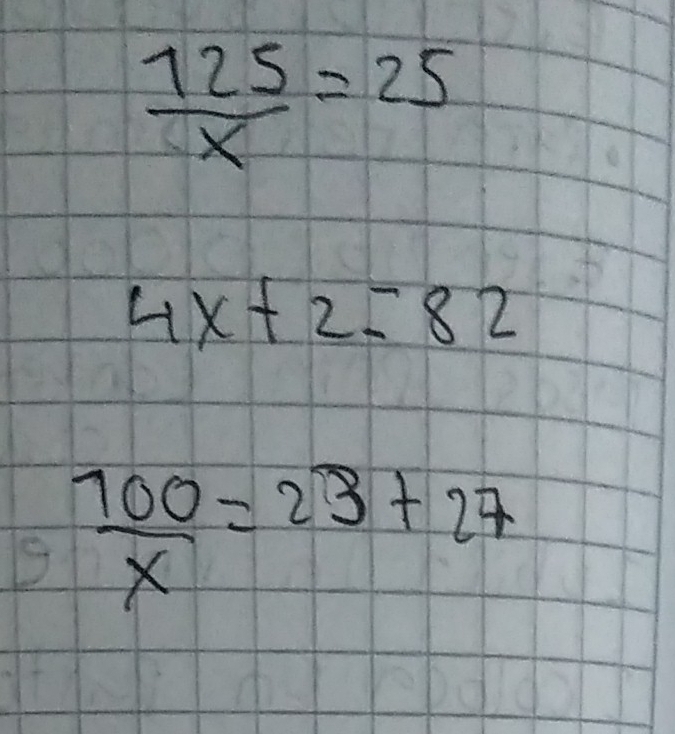 125/x = 25
4x + 2 = 82
100/x = 23 + 27